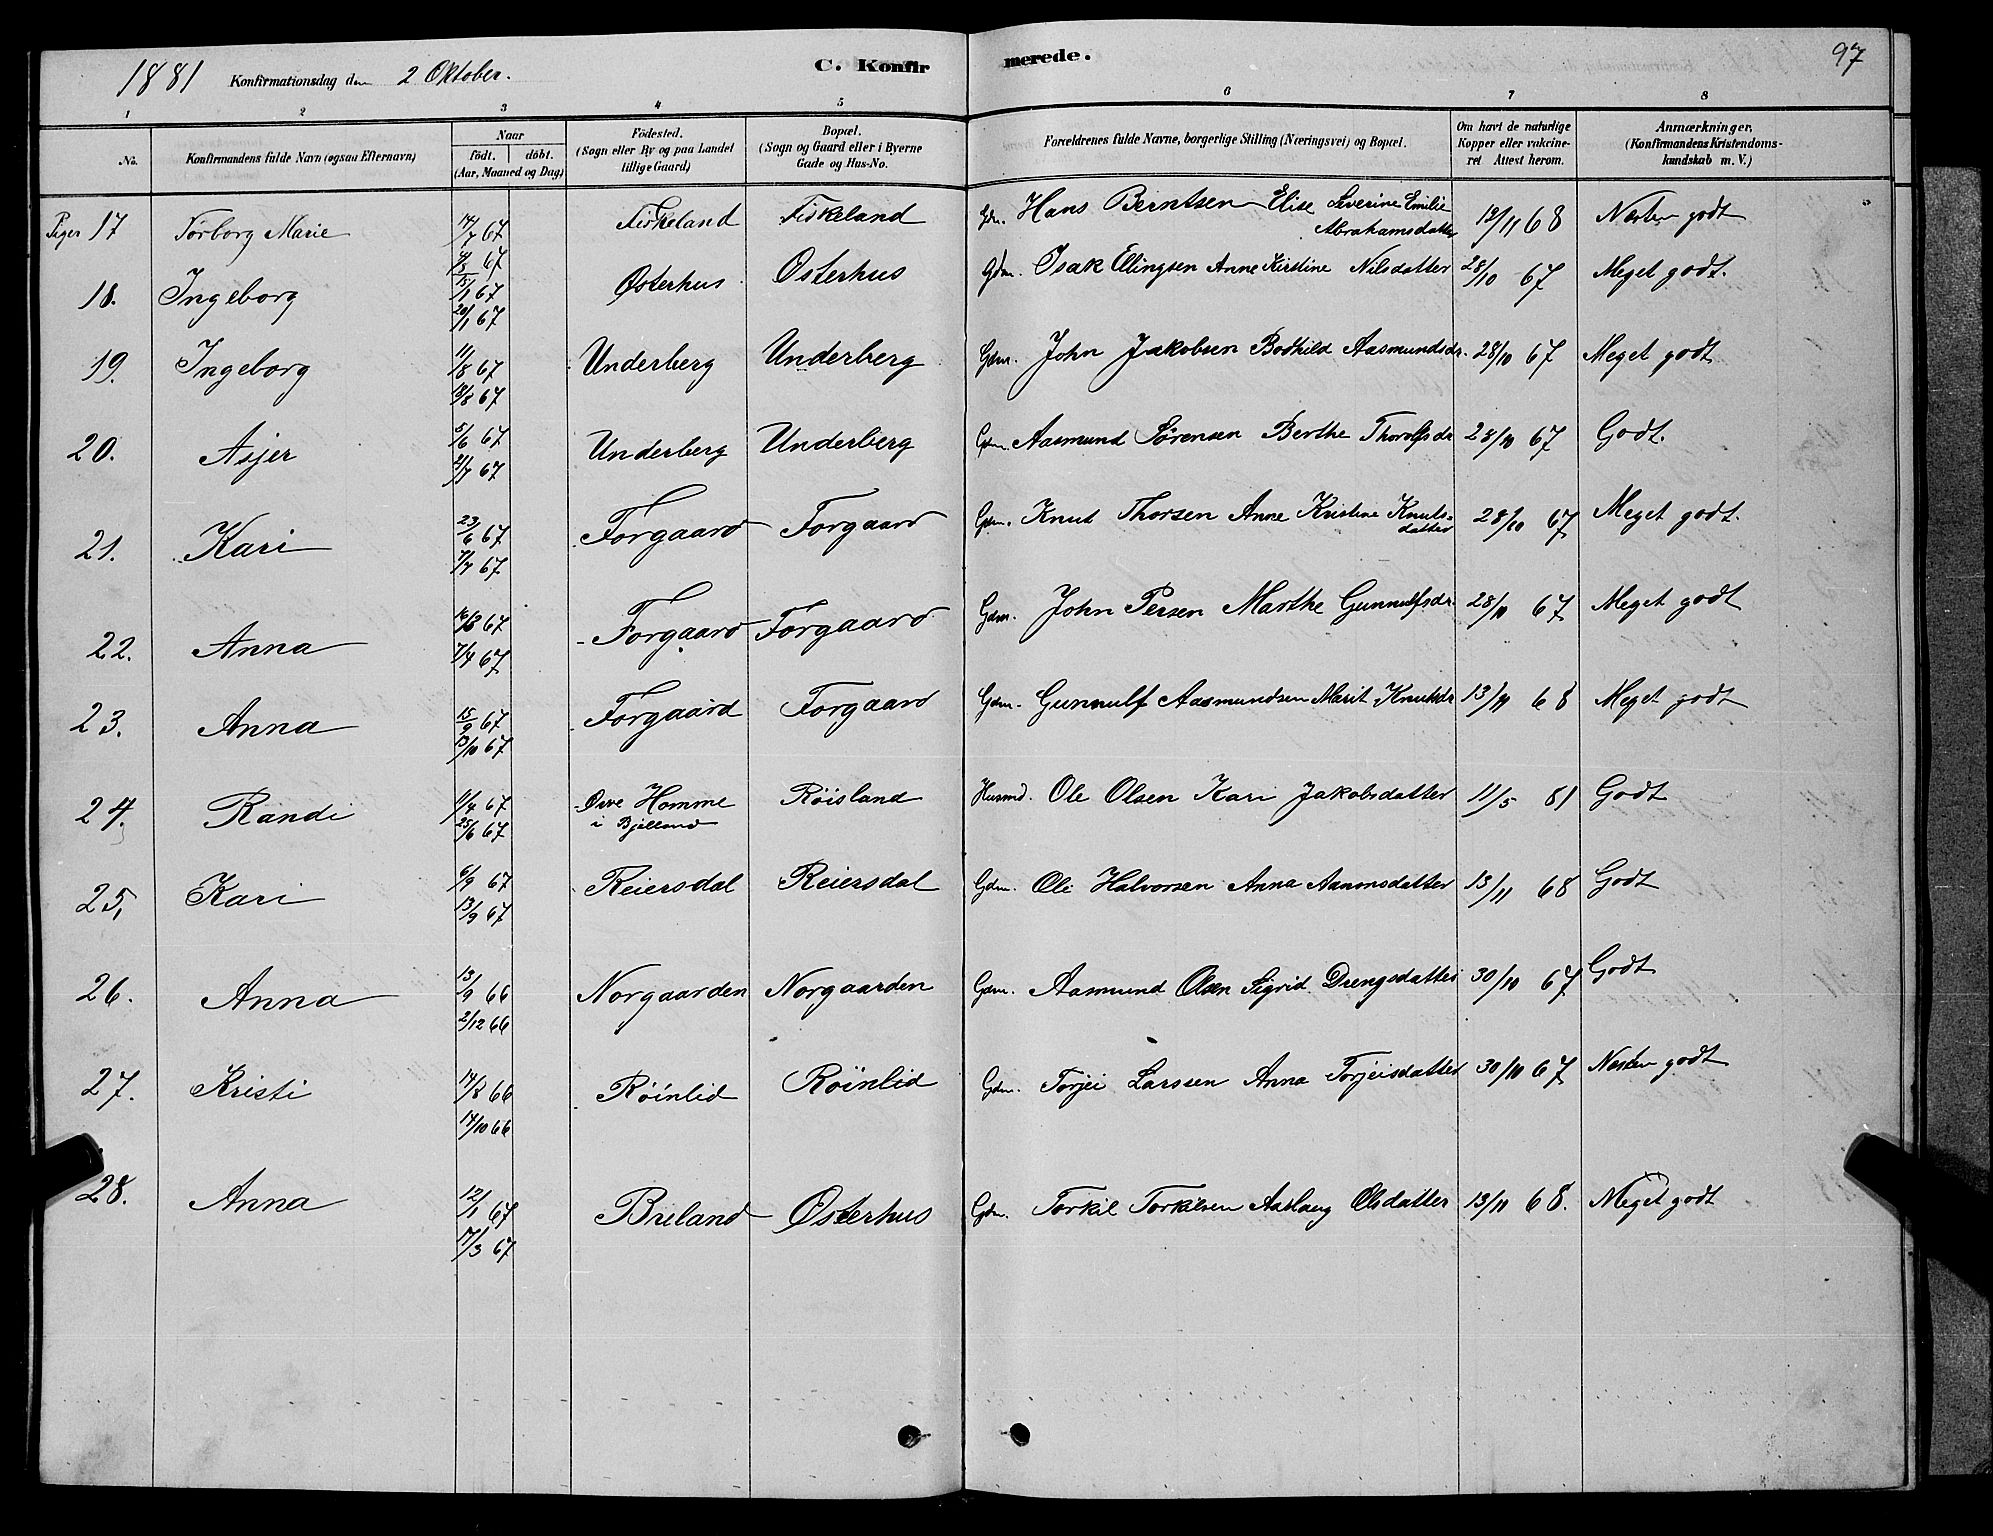 1881 Konfirmationsdag den 2 Oktober. C. Konfirmerede. 97
1 2 3 4 5 6 7 8
No. Konfirmandens fulde Navn (ogsaa Efternavn) Naar födt. döbt. (Aar, Maaned og Dag) Födested. (Sogn eller By og paa Landet tillige Gaard) Bopæl. (Sogn og Gaard eller i Byerne Gade og Hus-No. Forældrenes fulde Navne, borgerlige Stilling (Næringsvei) og Bopæl. Om havt de naturlige Kopper eller vaccineret Attest herom. Anmærkninger. (Konfirmandens Kristendomskundskab m. V.)
Piger 17 Torborg Marie 67 Fiskeland Fiskeland Gdm. Hans Berntsen Elise Severine Emilie Abrahamsdatter 12/11 68 Næsten godt
67
18. Ingeborg 15/1 67 Østerhus Østerhus Gdm. Isak Ellingsen Anne Kirstine Nilsdatter 28/10 67 Meget godt.
20/1 67
19. Ingeborg 11/8 67 Underberg Underberg Gdm. John Jakobsen Bodhild Aasmundsdr. 28/10 67 Meget godt
18/8 67
20. Asjer 5/6 67 Underberg Underberg Gdm. Aasmund Sørensen Berthe Thorolfsdr 28/10 67 Godt.
21/7 67
21. Kari 23/6 67 Forgaard Forgaard Gdm. Knud Thorsen Anne Kristine Knutsdatter 28/10 67 Meget godt.
7/7 67
22. Anna 16/3 67 Forgaard Forgaard Gdm. John Persen Marthe Gunnulfsdr. 28/10 67 Meget godt
7/4 67
23. Anna 15/9 67 Forgaard Forgaard Gdm. Gunnulf Aasmundsen Marit Knutsdr 13/11 68 Meget godt
13/10 67
24. Randi 11/4 67 Øvre Homme i Bjelland Röisland Husmd. Ole Olsen Kari Jakobsdatter 11/5 81 Godt
25/6 67
25, Kari 6/9 67 Reiersdal Reiersdal Gdm. Ole Halvorsen Anna Aanonsdatter 13/11 68 Godt
13/9 67
26. Anna 13/9 66 Norgaarden Norgaarden Gdm. Aasmund Olsen Sigrid Drengsdatter 30/10 67 Godt
2/12 66
27. Kristi 14/8 66 Röinlid Röinlid Gdm. Torjei Larssen Anna Torjeisdatter 30/10 67 Næsten godt
14/10 66
28. Anna 12/1 67 Breland Østerhus Gdm. Torkil Torkilsen Aaslaug Olsdatter 13/11 68. Meget godt
17/3 67